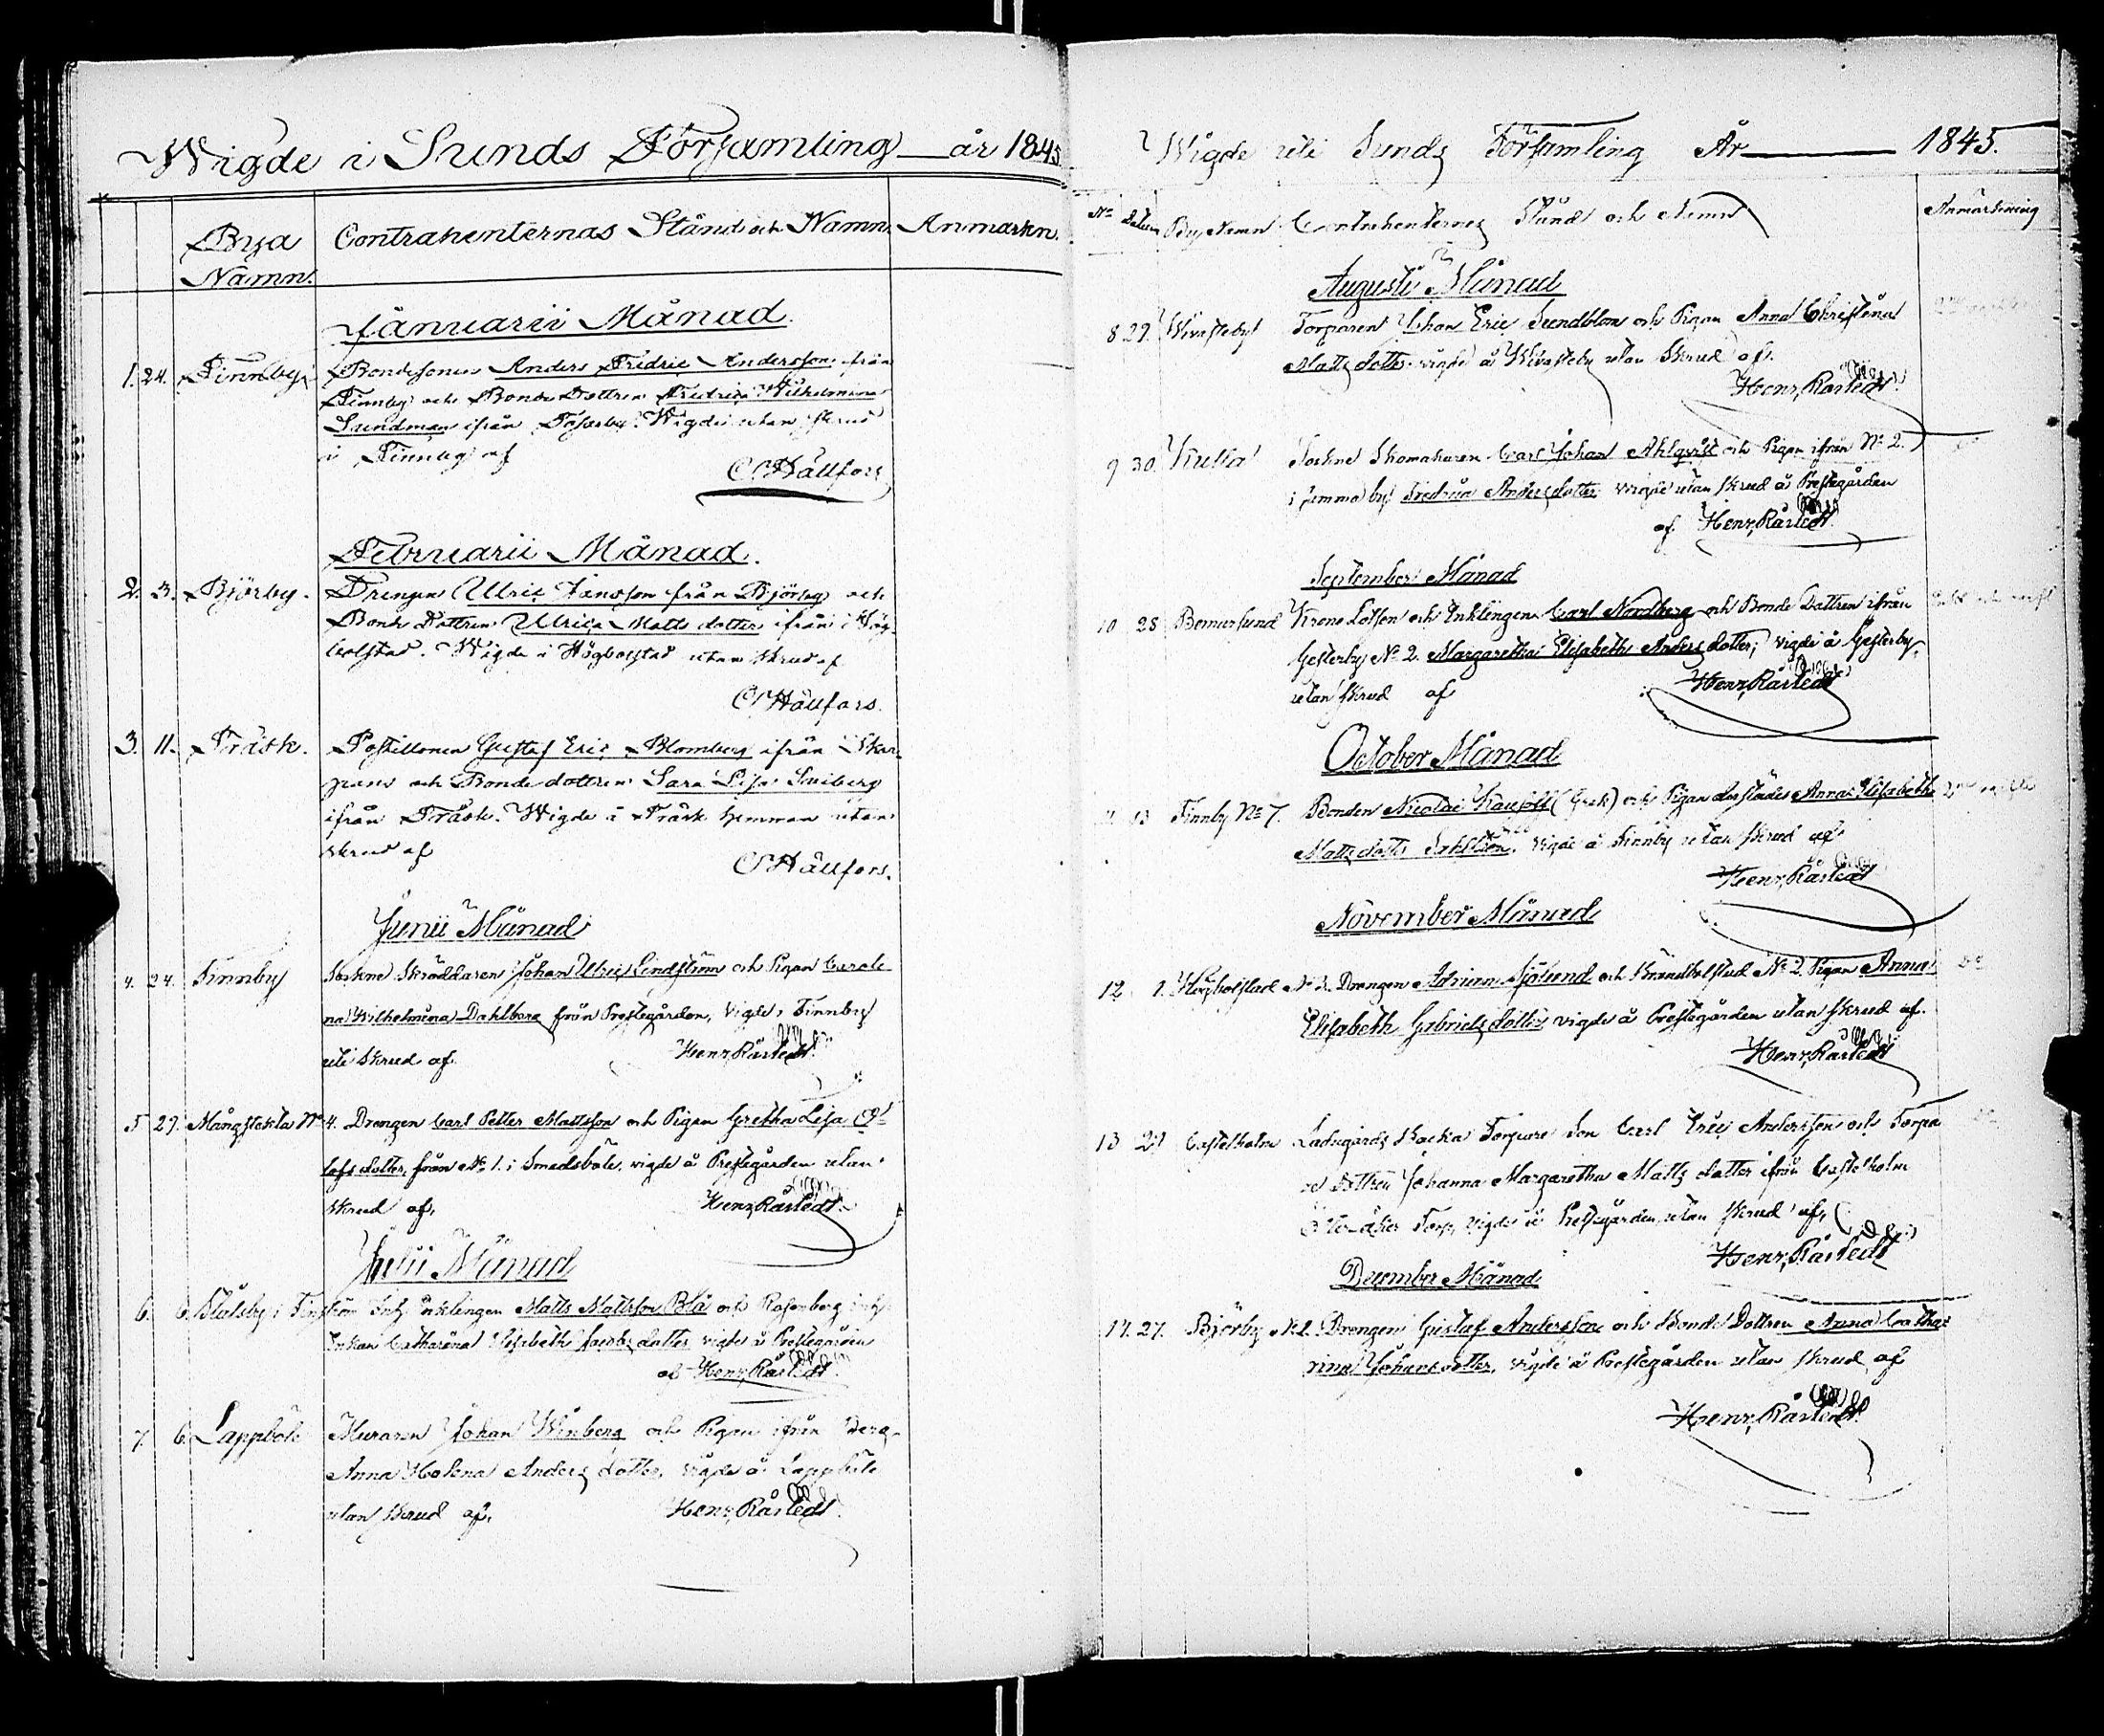 Wigde i Sunds Församling år 1845.
Bya Namn. Contrahenternas Stånd och Namn. Anmärkn.
Januarii Månad.
1. 24. Finnby. Bondesonen Anders Fridric Andersson från
Finnby och Bonde Dottren Fredrica Wilhelmina
Sundman ifrån Tosarby. Wigde utan skrud
i Finnby af
C Hällfors
Februarii Månad.
2. 3. Björby. Drengen Ulric Jansson från Björby och
Bonde Dottren Ulrica Matts dotter ifrån Hög-
bolstad. Wigde i Högbolstad utan skrud af
C Hällfors.
3. 11. Träsk. Postillonen Gustaf Eric Blomberg ifrån Skar-
pans och Bonde dottren Sara Lisa Sniberg
ifrån Träsk. Wigde å Träsk hemman utan
skrud af
C Hällfors.
Junii Månad
4. 24. Finnby Sockne Skräddaren Johan Ulric Lindström och Pigan Caroli-
na Wilhelmina Dahlberg från Prestegården, vigde i Finnby
uti skrud af. Henr, Råstedt.
5 29. Mångstekta No 4. Drengen Carl Petter Mattsson och Pigan Gretha Lisa
lofs dotter, från No 1. i Smedsböle, vigde å Prestegården utan
skrud af, Henr, Råstedt.
Julii Månad
6. 6. Finström Inhs. Enklingen Matts Mattsson Blå och Rosenberg
Enkan Catharina Elisabeth Jacobs dotter vigde å Prestegården
af Henr, Råstedt.
7. 6. Lappböle Muraren Johan Winberg och Pigan ifrån Berg-
Anna Helena Anders dotter, vigde å Lappböle
utan skrud af, Henr, Råstedt.
Wigde uti Sunds Församling År 1845.
No Datum By Namn Contrahenternes Stånd och Namn Anmärkning
Augusti Månad
8 29. Wivasteby Torparen Johan Eric Sundblom och Pigan Anna Christina
Matts dotter vigde å Wivasteby utan Skrud af.
Henr, Råstedt.
9 30. Kulla Sockne Skomakaren Carl Johan Ahlqvist och Pigan ifrån No 2.
i samma by Fredrica Anders dotter vigde utan skrud å Prestegården
af Henr, Råstedt.
September Månad
10 28 Bomarsund Krono Lotsen och Enklingen Carl Nordberg och Bonde Dottren ifrån
Gesterby No 2. Margaretha Elisabeth Anders dotter, vigde å Gesterby
utan skrud af Henr, Råstedt
October Månad
11 13 Finnby No 7. Bonden Nicolai (Grek) och Pigan derstädes Anna Elisabeth
Matts dotter Dahlblom. Vigde å Finnby utan skrud af
Henr, Råstedt
November Månad
12 1. Högbolstad No 3. Drengen Adrian Sjölund och Brändbolstad No 2. Pigan Anna
Elisabeth Gabriels dotter vigde å Prestegården utan skrud af.
Henr, Råstedt
13 29 Castelholm Ladugårds Backa Torpare Son Carl Eric Andersson och Torpa
re Dottren Johanna Margaretha Matts dotter ifrån Castelholm
Torp, vigde å Prestegården utan skrud af,
Henr, Råstedt
December Månad
14. 27. Björby No 1. Drengen Gustaf Andersson och Bonde Dottren Anna Catha-
rina Johans dotter, vigde å Prestegården utan skrud af
Henr, Råstedt.